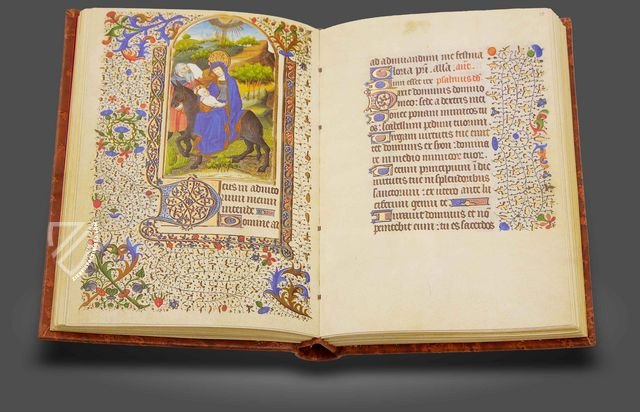 Deus in adiuto
rium meum
intende
Domine ad
ad adiuuandum me festina
Gloria pri. alla. ant.
psalmus dd.
Dixit dominus domino
meo: sede a dextris mei
Donec ponam inimicos tu
os: scabellum pedum tuorum
Virgam uirtutis tue emit
tet dominus ex sion: domina
re in medio inimicor tuor.
Tecum principium i die
uirtutis tue in splendoribus
sanctorum: ex utero ante lu
ciferum genui te
Iurauit dominus et no
penitebit eum: tu es sacerdos